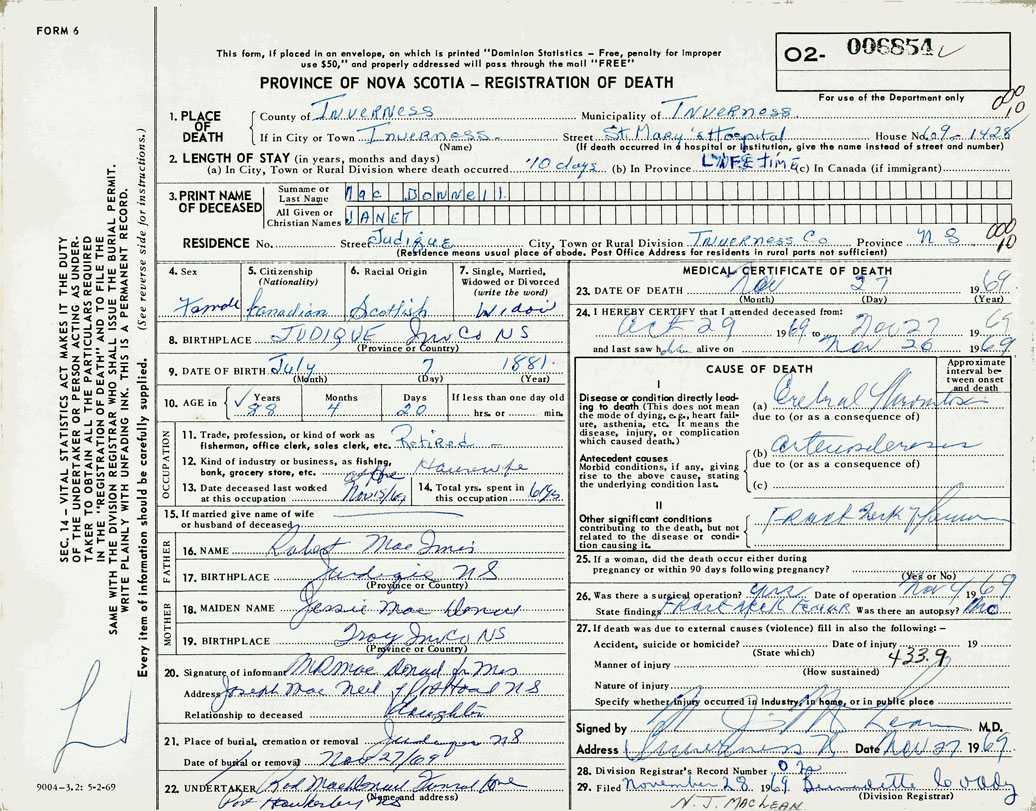 FORM 6
This form, if placed in an envelope, on which is printed "Dominion Statistics – Free, penalty for improper
use $50," and properly addressed will pass through the mail "FREE"
PROVINCE OF NOVA SCOTIA – REGISTRATION OF DEATH
02- 006854
For use of the Department only
1. PLACE OF DEATH
County of INVERNESS Municipality of INVERNESS
If in City or Town INVERNESS Street St. Mary's Hospital House No. 69-1428
(Name) (If death occurred in a hospital or institution, give the name instead of street and number)
2. LENGTH OF STAY (in years, months and days)
(a) In City, Town or Rural Division where death occurred 10 days (b) In Province LIFE time (c) In Canada (if immigrant)
3. PRINT NAME OF DECEASED
Surname or Last Name Mac Donnell
All Given or Christian Names JANET
RESIDENCE No. Street Judique City, Town or Rural Division INVERNESS Co Province N S
(Residence means usual place of abode. Post Office Address for residents in rural parts not sufficient)
4. Sex Female
5. Citizenship (Nationality) Canadian
6. Racial Origin Scottish
7. Single, Married, Widowed or Divorced (write the word) Widow
8. BIRTHPLACE JUDIQUE Inv Co NS
(Province or Country)
9. DATE OF BIRTH July 7 1881
(Month) (Day) (Year)
10. AGE in Years 88 Months 4 Days 20 If less than one day old hrs. or min.
OCCUPATION
11. Trade, profession, or kind of work as fisherman, office clerk, sales clerk, etc. Retired
12. Kind of industry or business, as fishing, bank, grocery store, etc. Housewife
at home
13. Date deceased last worked at this occupation Nov 15/69
14. Total yrs. spent in this occupation
15. If married give name of wife or husband of deceased
FATHER
16. NAME Robert Mac Innis
17. BIRTHPLACE Judique N S
(Province or Country)
MOTHER
18. MAIDEN NAME Jessie Mac
19. BIRTHPLACE Troy Inv Co NS
(Province or Country)
20. Signature of informant
Address Joseph Mac Neil N S
Relationship to deceased Daughter
21. Place of burial, cremation or removal Judique N S
Date of burial or removal Nov 27/69
22. UNDERTAKER
Port Hawkesbury NS
(Name and address)
MEDICAL CERTIFICATE OF DEATH
23. DATE OF DEATH Nov 27 1969
(Month) (Day) (Year)
24. I HEREBY CERTIFY that I attended deceased from:
Oct 29 1969 to Nov 27 69
and last saw her alive on Nov 26 1969
CAUSE OF DEATH
Approximate interval between onset and death
I
Disease or condition directly leading to death (This does not mean the mode of dying, e.g., heart failure, asthenia, etc. It means the disease, injury, or complication which caused death.)
(a) Cerebral Thrombosis
due to (or as a consequence of)
Antecedent causes
Morbid conditions, if any, giving rise to the above cause, stating the underlying condition last.
(b) arteriosclerosis
due to (or as a consequence of)
(c)
II
Other significant conditions contributing to the death, but not related to the disease or condition causing it.
Fract Neck Femur
25. If a woman, did the death occur either during
pregnancy or within 90 days following pregnancy?
(Yes or No)
26. Was there a surgical operation? yes Date of operation Nov 4 1969
State findings Fract neck Femur Was there an autopsy? No
27. If death was due to external causes (violence) fill in also the following: –
Accident, suicide or homicide? Date of injury 19
(State which)
433.9
Manner of injury
(How sustained)
Nature of injury
Specify whether injury occurred in industry, in home, or in public place
Signed by M.D.
Address Inverness N Date Nov 27 1969
28. Division Registrar's Record Number
29. Filed November 28 1969
(Division Registrar)
N. J. MACLEAN
SEC. 14 – VITAL STATISTICS ACT MAKES IT THE DUTY
OF THE UNDERTAKER OR PERSON ACTING AS UNDER-
TAKER TO OBTAIN ALL THE PARTICULARS REQUIRED
IN THE "REGISTRATION OF DEATH" AND TO FILE THE
SAME WITH THE DIVISION REGISTRAR WHO SHALL ISSUE THE BURIAL PERMIT.
WRITE PLAINLY WITH UNFADING INK. THIS IS A PERMANENT RECORD.
Every item of information should be carefully supplied. (See reverse side for instructions.)
9004-3.2: 5-2-69